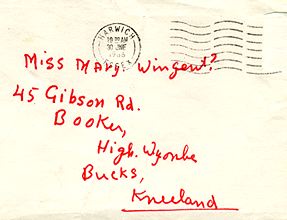 HARWICH
30 JNE
ESSEX
Miss Mary. Wingent?
45 Gibson Rd.
Booker,
High. Wycombe
Bucks,
Kneeland